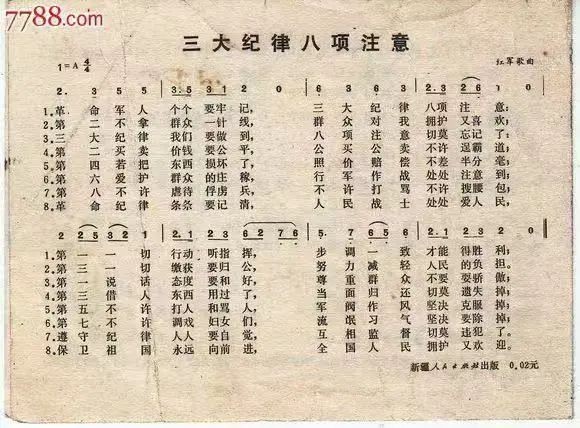 7788.com
三大纪律八项注意
1=A 4/4
红军歌曲
2. 3 5 5 | 3.5 3 1 2 0 | 6 3 6 3 | 2.3 2 6 1 0 |
1.革命军人 个个要牢记, 三大纪律 八项注意:
2.第二不拿 群众一针线, 群众对我 拥护又喜欢;
3.三大纪律 我们要做到 八项注意 切莫忘记了
4.第二买卖 价钱要公平 公买公卖 不许逞霸道;
5.第四若把 东西损坏了, 照价赔偿 不差半分毫;
6.第六爱护 群众的庄稼, 行军作战 处处注意到
7.第八不许 虐待俘虏兵, 不许打骂 不许搜腰包;
8.革命纪律 条条要记清, 人民战士 处处爱人民,
2 2 5 3 2 1 | 2.1 2 3 6 2 7 6 | 5. 7 6 3 | 2.1 2 3 2 0
1.第一一切 行动听指挥, 步调一致 才能得胜利;
2.第三一切 缴获要归公, 努力减轻 人民的负担。
3.第一说话 态度要和好, 尊重群众 不要耍骄傲;
4.第三借人 东西用过了, 当面归还 切莫遗失掉;
5.第五不许 打人和骂人, 军阀作风 坚决克服掉;
6.第七不许 调戏妇女们, 流氓习气 坚决要除掉;
7.遵守纪律 人人要自觉, 互相监督 切莫违犯了。
8.保卫祖国 永远向前进, 全国人民 拥护又欢迎。
新疆人民出版社出版 0.02元